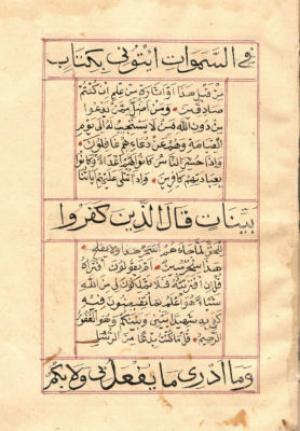 في السموات ايتوني بكتاب
من قبل هذا او اثارة من علم ان كنتم
صادقين ومن اضل ممن يدعوا
من دون الله من لا يستجيب له الى يوم
القيامة وهم عن دعائهم غافلون
واذا حشر الناس كانوا لهم اعداء وكانوا
بعبادتهم كافرين واذا تتلى عليهم اياتنا
بينات قال الذين كفروا
للحق لما جاءهم
هذا سحر مبين ام يقولون افتراه
قل ان افتريته فلا تملكون لي من الله
شيئا هو اعلم بما تفيضون فيه
كفى به شهيدا بيني وبينكم وهو الغفور
الرحيم قل ما كنت بدعا من الرسل
وما ادري ما يفعل بي ولا بكم